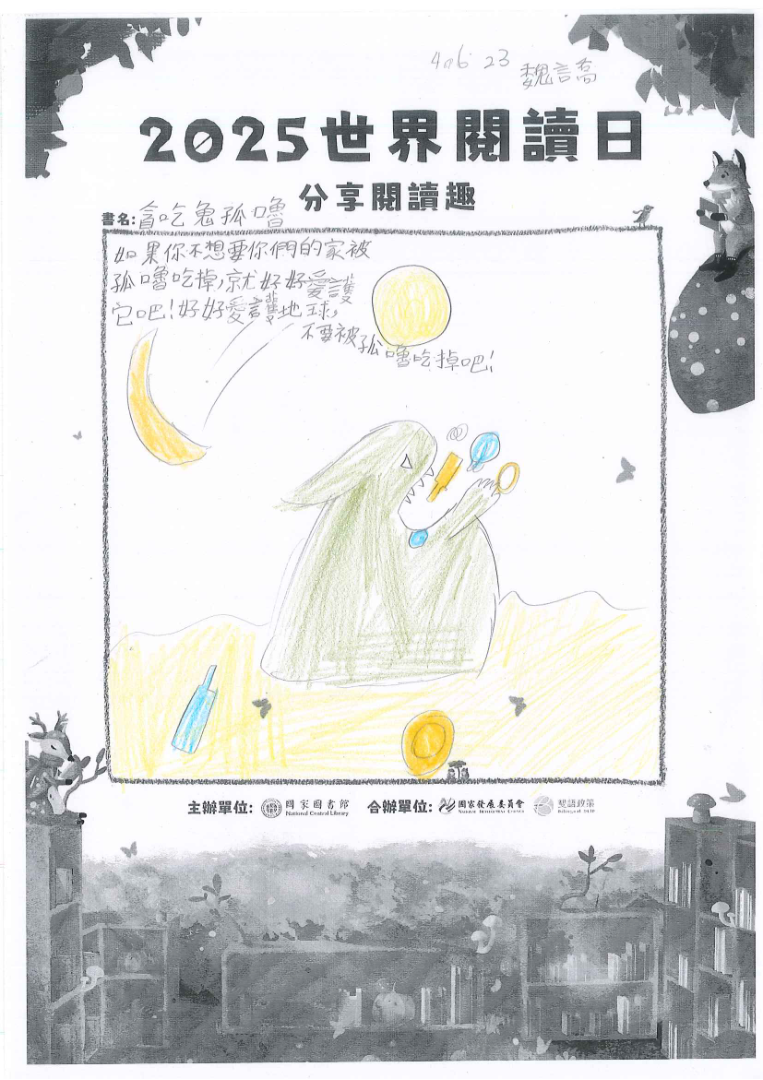 406 23 魏言喬
2025世界閱讀日
分享閱讀趣
書名:貪吃兔孤嚕
如果你不想要你們的家被
孤嚕吃掉,就好好愛護
它吧!好好愛護地球,
不要被孤嚕吃掉吧!
主辦單位: 國家圖書館 National Central Library 合辦單位: 國家發展委員會 雙語政策